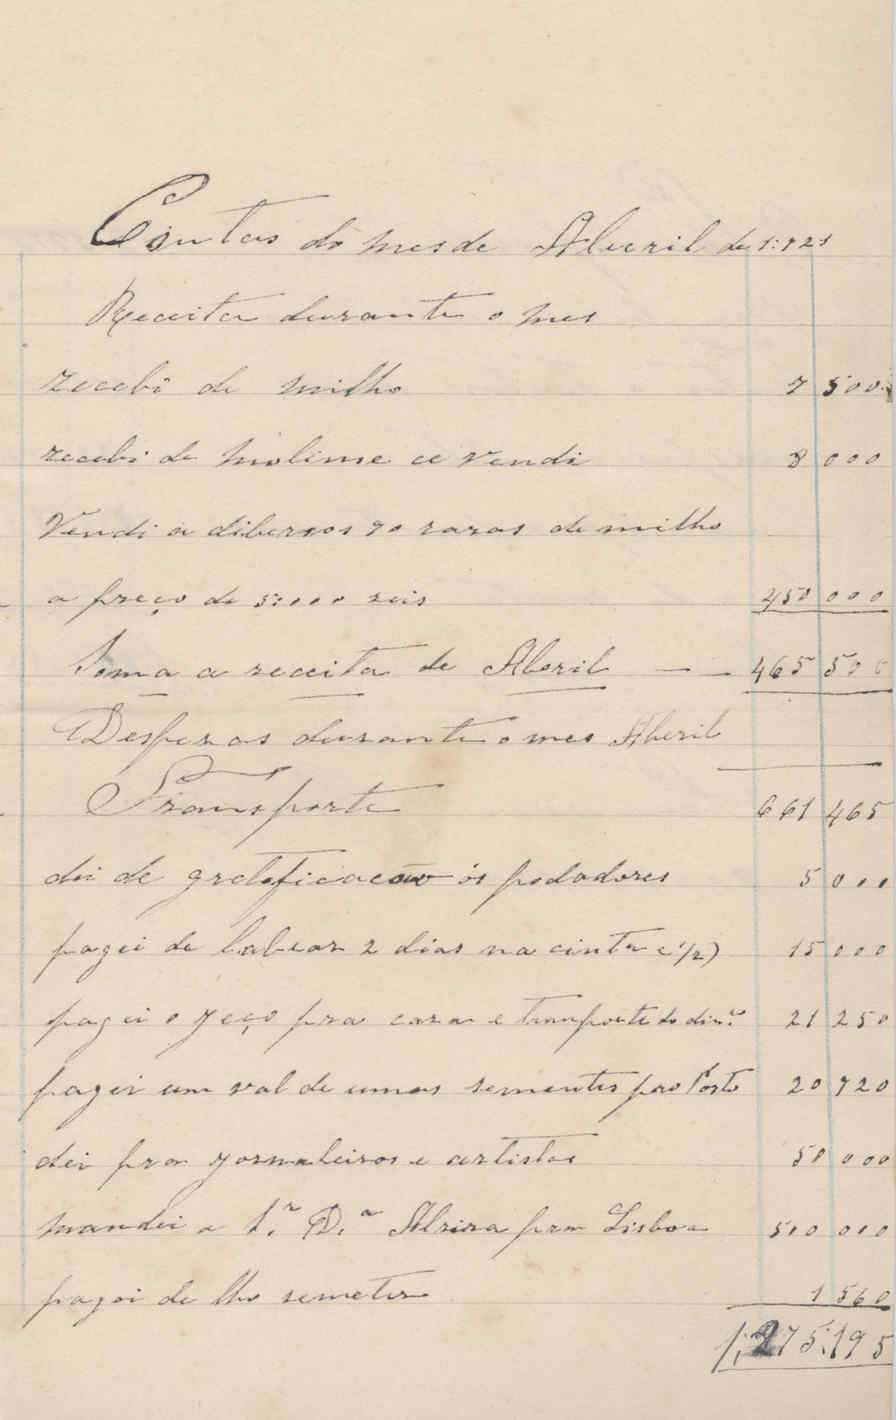 Contas do mes de Abveril de 1:921
Receita durante o mes
recebi de milho 7 500
recebi de molime ce vendi 8 000
Vendi a diberços 90 razas de milho
a preço de 5:000 reis 450 000
Soma a receita de Aberil — — 465 500
Despezas durante o mes Aberil
Transporte 661 465
dei de greteficacão ós podadores 5 000
pagei de labrar 2 dias na cinta e 1/2) 15 000
pagei o geço pra caza e tranporte do dir.º 21 250
pagei um val de umas sementes pro Porto 20 920
dei pra jornaleiros e artistas 50 000
mandei a S.ª D.ª Alzira pra Lisboa 500 000
pagei de lho remeter 1 560
1:275:195